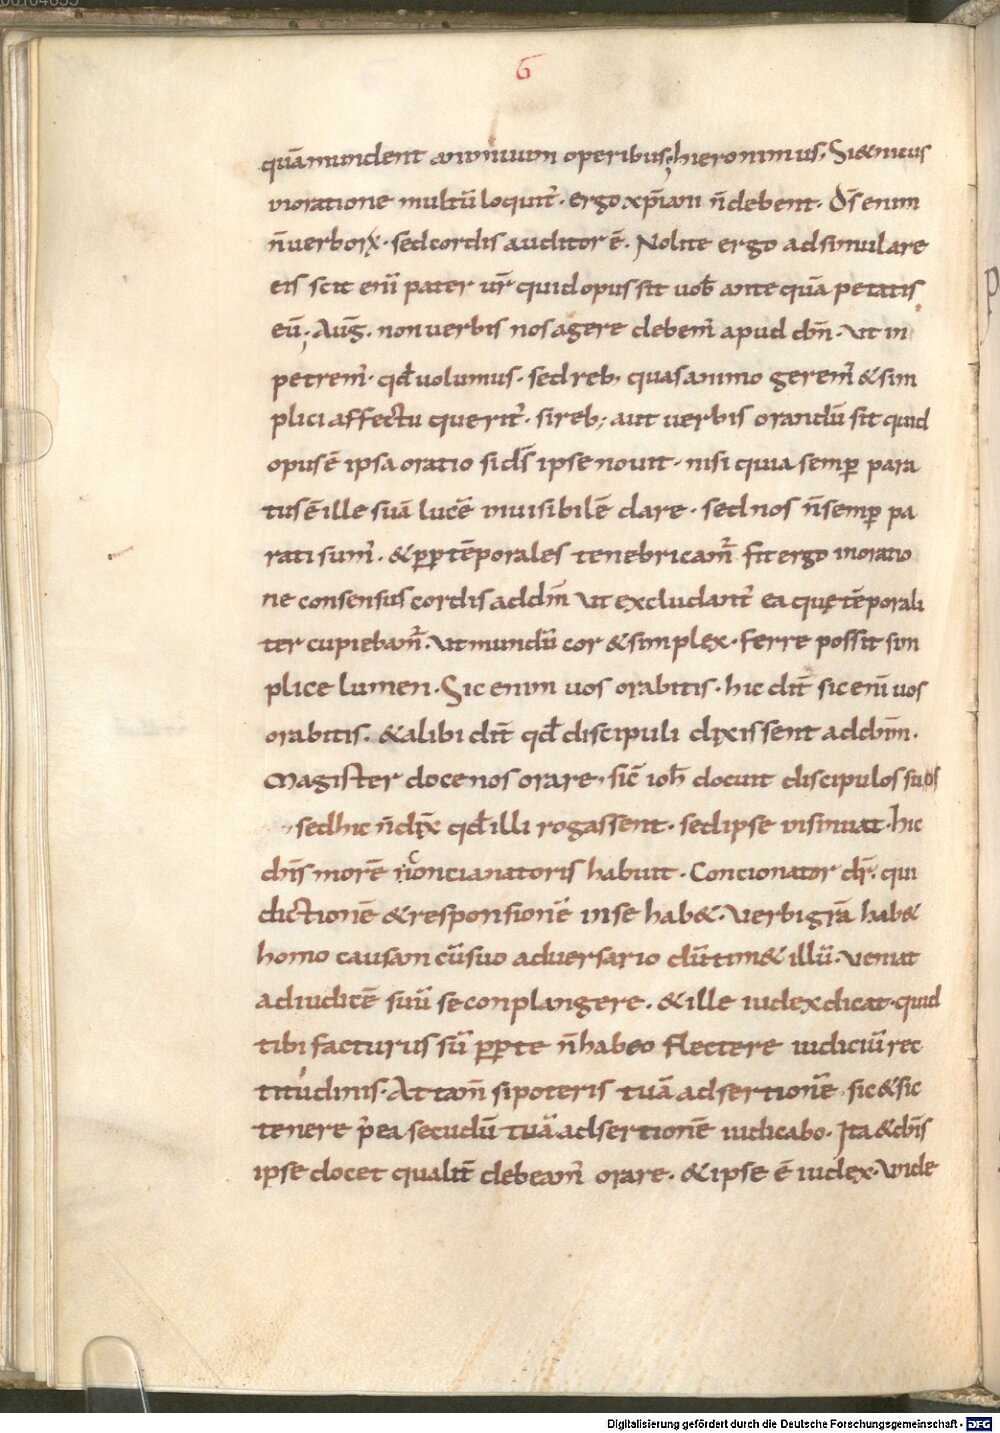 6
quāmundent animum operibus; hieronimus. Si&nicus
inoratione multū loquit᷒. ergo xp̄iani n̄debent. Dс̄ enim
n̄uerboꝝ. sedcordis auditor ē. Nolite ergo adsimulare
eis scit eni᷒ pater ur̄ quid opus sit uob̄ ante quā petatis
eū; Auḡ. non uerbis nos agere debem᷒ apud dn̄m. ut in
petrem᷒. qd̄ uolumus. sed reb; quas animo gerem᷒ & sim
plici affectu querit᷒. si reb; aut uerbis orandū sit quid
opus ē ipsa oratio si ds̄ ipse nouit. nisi quia semꝑ para
tus ē ille suā lucē inuisibilē dare. sed nos n̄semꝑ pa
rati sum᷒. & ꝑpt̄ēporales tenebricam᷒ fit ergo inoratio
ne consensus cordis addn̄m ut excludant᷒ ea quę tēporali
ter cupiebam᷒. ut mundū cor & simplex. ferre possit sim
plice lumen. Sic enim uos orabitis. hic dit̄ sic eni᷒ uos
orabitis. & alibi dit̄ qd̄ discipuli dixissent addn̄m.
Magister doce nos orare. sic̄ ioh̄ docuit discipulos suos
sed hic n̄dix̄ qd̄ illi rogassent. sed ipse insinuat. hic
dn̄s morē concianatoris habuit. Concionator dr̄. qui
dictionē & responsionē inse hab&. Verbi grā hab&
homo causam cū suo aduersario dū tim& illū. ueniat
adiudicē suū se conplangere. & ille iudex dicat. quid
tibi facturus sū ꝑpte n̄habeo flectere iudiciū rec
titudinis. At tam̄ si poteris tuā adsertionē sic & sic
tenere p᷒ea secudū tuā adsertionē iudicabo. Ita & dn̄s
ipse docet qualit̄ debeam᷒ orare. & ipse ē iudex. Vnde
Digitalisierung gefördert durch die Deutsche Forschungsgemeinschaft - DFG